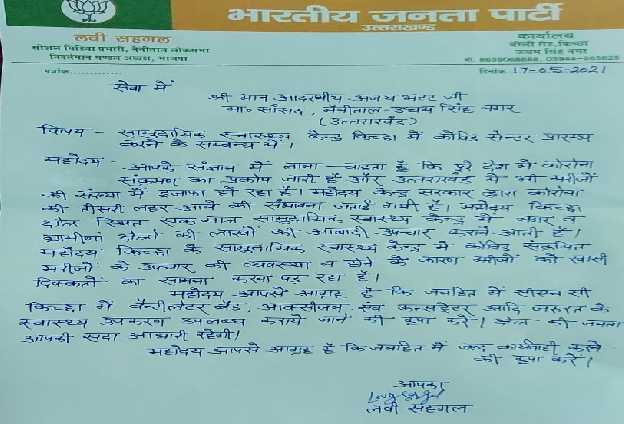 भारतीय जनता पार्टी
उत्तराखण्ड
लवी सहगल
सोशल मिडिया प्रभारी, नैनीताल लोकसभा
निवर्तमान मण्डल अध्यक्ष, भाजपा
कार्यालय
दिनांक 17-05-2021
सेवा में
श्री मान आदरणीय अजय भट्ट जी
मा० सांसद, नैनीताल-ऊधम सिंह नगर
(उत्तराखंड)
विषय - सामुदायिक स्वास्थ्य केन्द्र किच्छा में कोविड सेन्टर प्रारम्भ
करने के सम्बन्ध में।
महोदय- आपके संज्ञान में लाना चाहता हूँ कि पूरे देश में कोरोना
संक्रमण का प्रकोप जारी है और उत्तराखंड में भी मरीजों
की संख्या में इजाफा हो रहा है। महोदय केन्द्र सरकार द्वारा कोरोना
की तीसरी लहर आने की संभावना जताई गयी है। महोदय किच्छा
क्षेत्र स्थित एक मात्र सामुदायिक स्वास्थ्य केन्द्र में नगर व
ग्रामीण क्षेत्रों की लाखों की आबादी उपचार कराने आती है।
महोदय किच्छा के सामुदायिक स्वास्थ्य केन्द्र में कोविड संक्रमित
मरीजों के उपचार की व्यवस्था न होने के कारण मरीजों को खासी
दिक्कतों का सामना करना पड़ रहा है।
महोदय आपसे आग्रह है कि जनहित में सीएच सी
किच्छा में वैन्टीलेटर बैड, आक्सीजन एंव कन्संट्रेटर आदि जरूरत के
स्वास्थ्य उपकरण उपलब्ध कराये जाने की कृपा करें। क्षेत्र की जनता
आपकी सदा आभारी रहेगी।
महोदय आपसे आग्रह है कि जनहित में जल्द कार्यवाही करने
की कृपा करें।
आपका
लवी सहगल